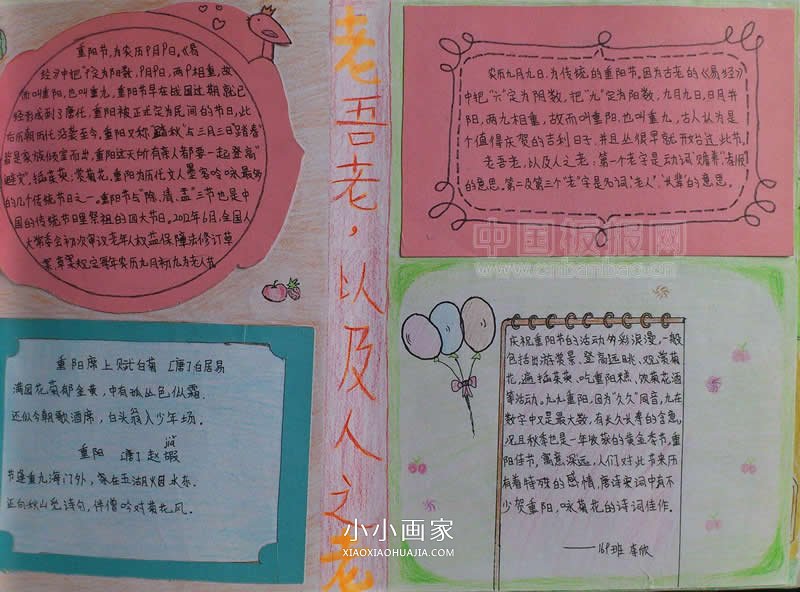 重阳节，为农历9月9日，《易
经》中把"9"定为阳数，9月9日，两9相重，故
而叫重阳，也叫重九，重阳节早在战国过期就已
经形成到了唐代，重阳被正式定为民间的节日，此
后历朝历代沿袭至今，重阳又称"踏秋"与三月三日"踏春"
皆是家族倾室而出，重阳这天所有亲人都要一起登高"
避灾"，插茱萸，赏菊花，重阳为历代文人墨客吟咏最
的几个传统节日之一。重阳节与"除、清、盂"三节也是中
国的传统节日里祭祖的四大节日。2012年6月，全国人
大常委会初次审议老年人权益保障法修订草
案，草案规定每年农历九月初九为老人节
重阳席上赋白菊 [唐]白居易
满园花菊郁金黄，中有孤丛色似霜
还似今朝歌酒席，白头翁入少年场。
重阳 [唐] 赵嘏
节逢重九海门外，家在五湖烟水东。
还向秋山觅诗句，伴僧吟对菊花风。
老吾老，以及人之老
农历九月九日，为传统的重阳节。因为古老的《易经》
中把"六"定为阴数，把"九"定为阳数，九月九日，日月并
阳，两九相重，故而叫重阳，也叫重九，古人认为是
个值得庆贺的吉利日子，并且从很早就开始过此节。
老吾老，以及人之老，第一个老字是动词"赡养""老师"
的意思。第二及第三个"老"字是名词"老人"、"长辈"的意思。
中国板报网
www.cnbanbao.cn
庆祝重阳节的活动多彩浪漫，一般
包括出游赏景、登高远眺、观赏菊
花、遍插茱萸、吃重阳糕、饮菊花酒
等活动。九九重阳，因为"久久"同音，九在
数字中又是最大数，有长久长寿的含意。
况且秋季也是一年收获的黄金季节，重
阳佳节，寓意深远，人们对此节来历
有着特殊的感情，唐诗宋词中有不
少贺重阳，咏菊花的诗词佳作。
——169班 李欣
小小画家
XIAOXIAOHUAJIA.COM